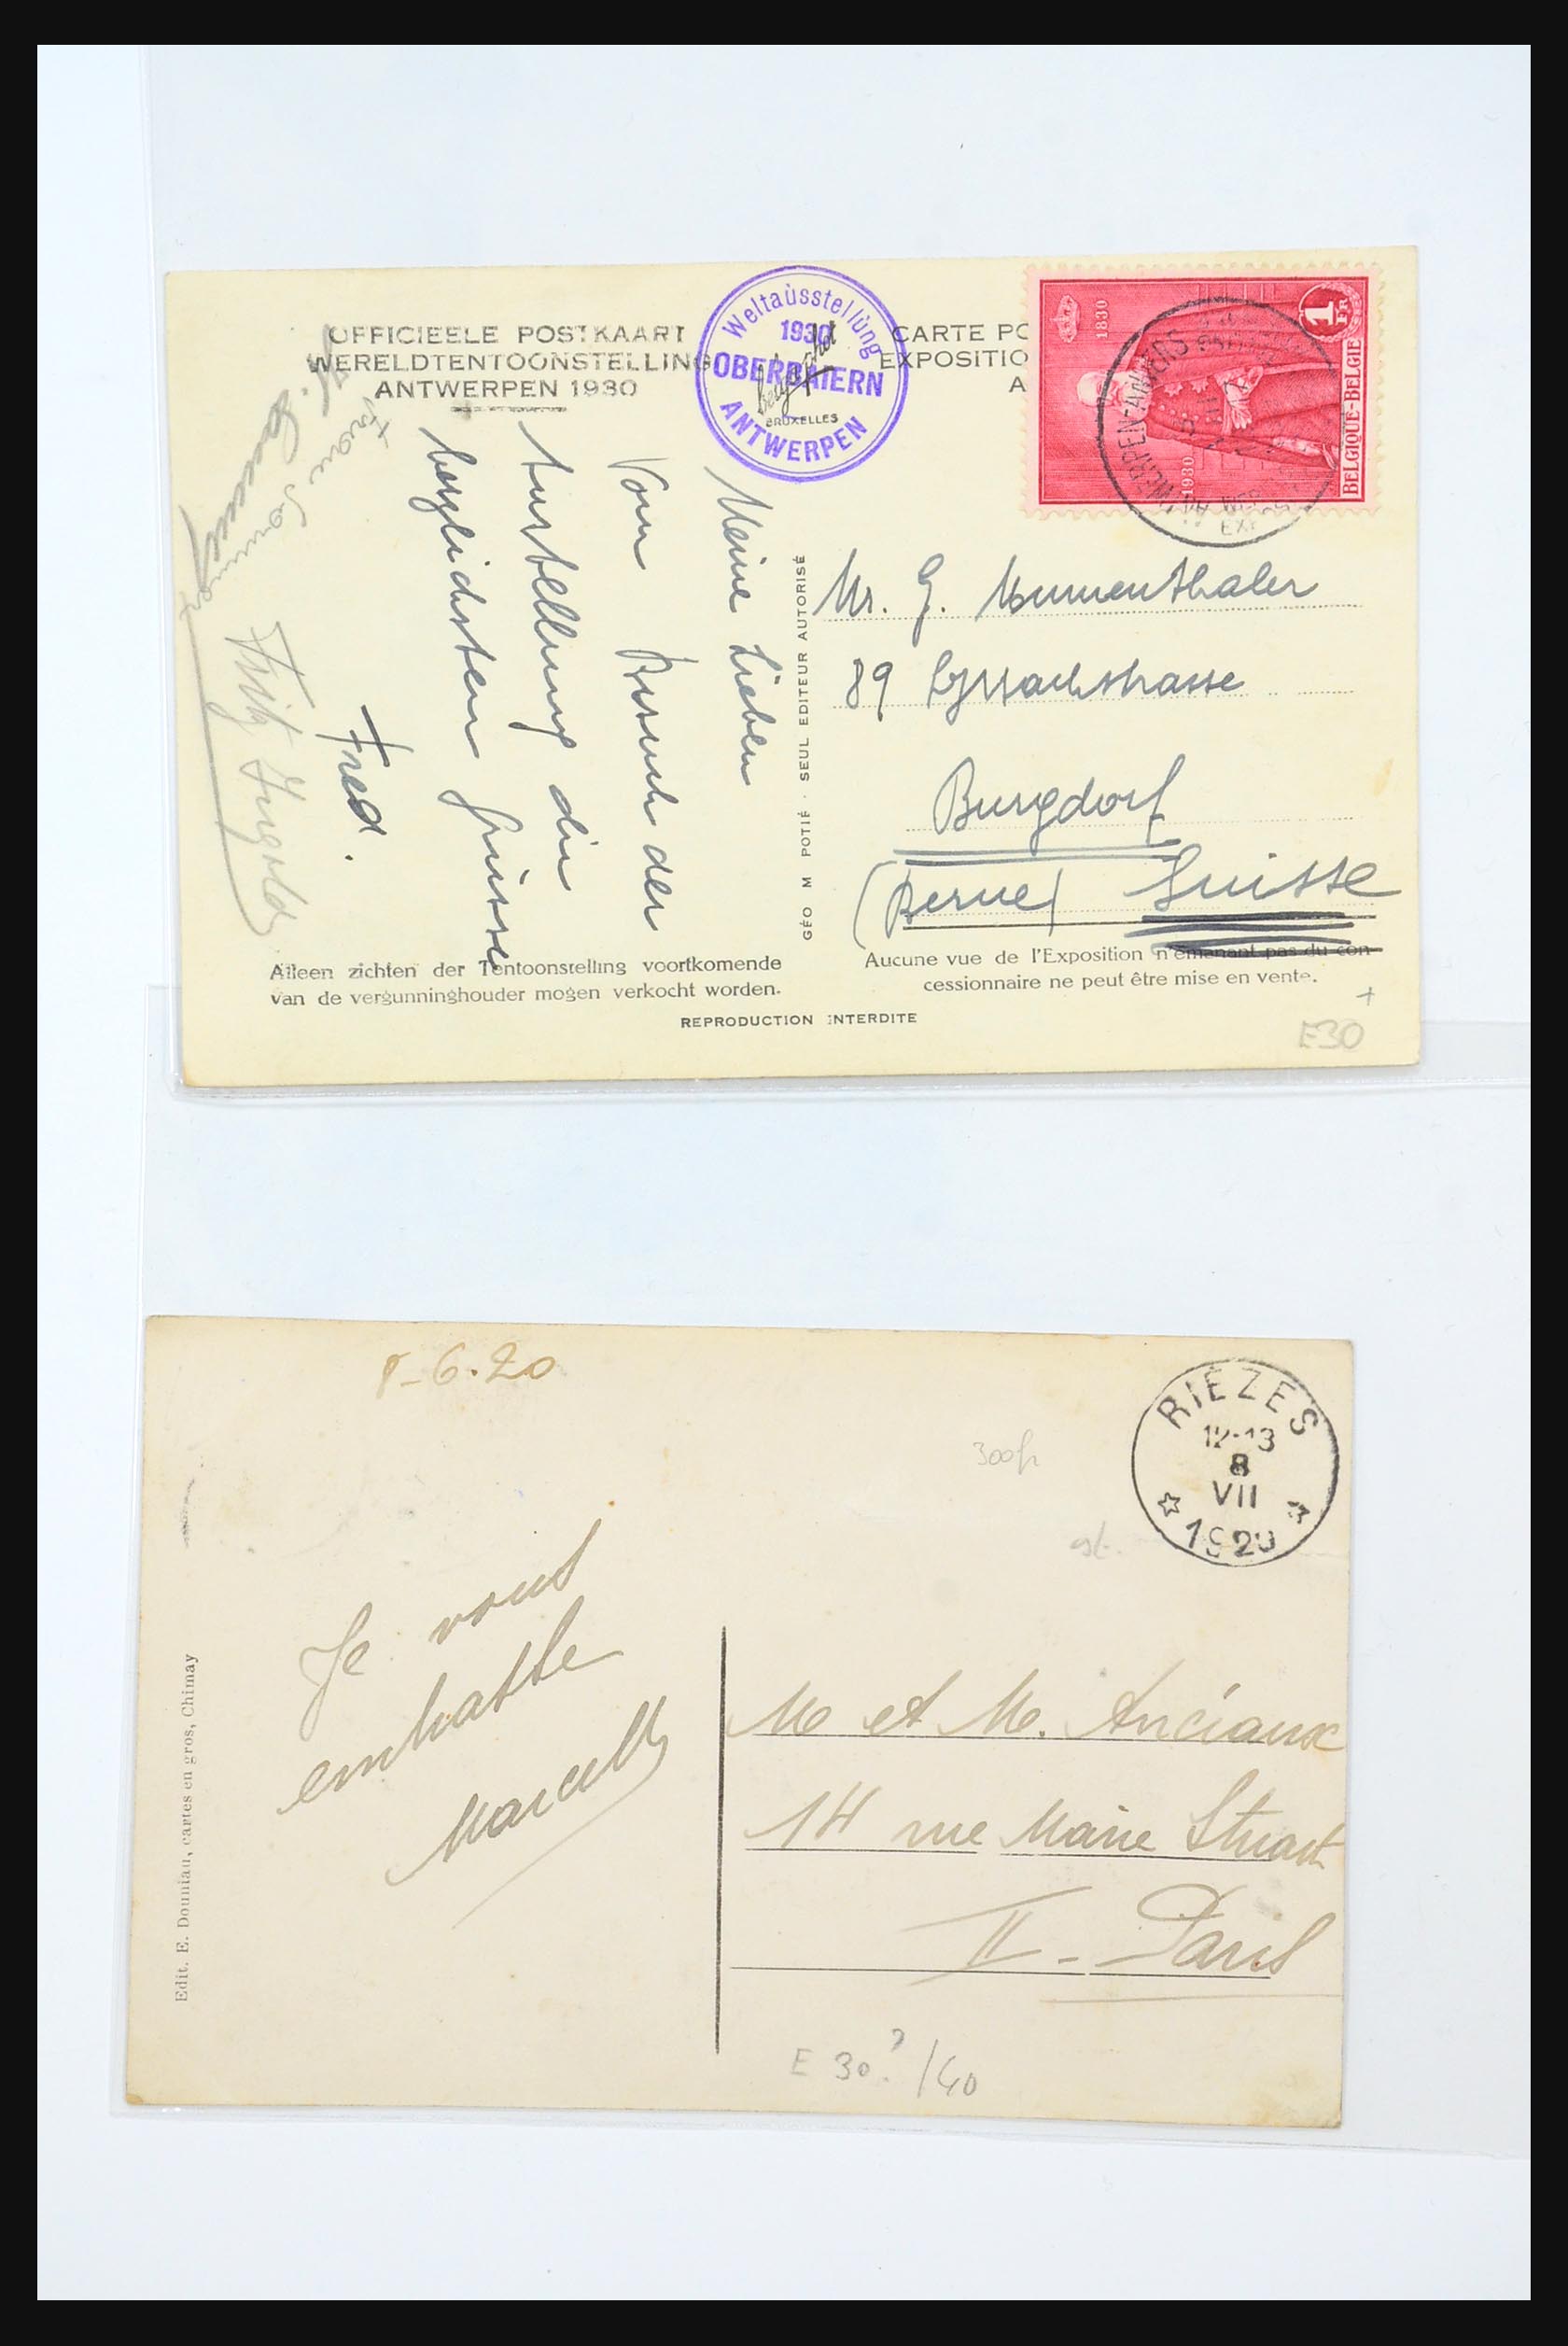 OFFICIEELE POSTKAART
WERELDTENTOONSTELLING
ANTWERPEN 1930
Weltaùsstellùng
1930
OBERBAIERN
ANTWERPEN
BRUXELLES
CARTE PO
EXPOSITIO
A
1830
1930
1 FR
BELGIQUE-BELGIE
ANTWERPEN ANVERS
Meine Lieben
Vom Besuch der
Ausstellung die
herzlichsten Grüsse
Fred.
Fritz Ingold
GÉO M POTIÉ · SEUL EDITEUR AUTORISÉ
Mr. G. Mumenthaler
89 Lyssachstrasse
Burgdorf
(Berne) Suisse
Alleen zichten der Tentoonstelling voortkomende
van de vergunninghouder mogen verkocht worden.
Aucune vue de l'Exposition n'émanant pas du con-
cessionnaire ne peut être mise en vente.
REPRODUCTION INTERDITE
E30
8-6.20
300fr
RIEZES
12-13
8
VII
1920
Je vous
embrasse
Marcelle
Edit. E. Douniau, cartes en gros, Chimay
M et M. Anciaux
14 rue Marie Stuart
II - Paris
E 30? /40